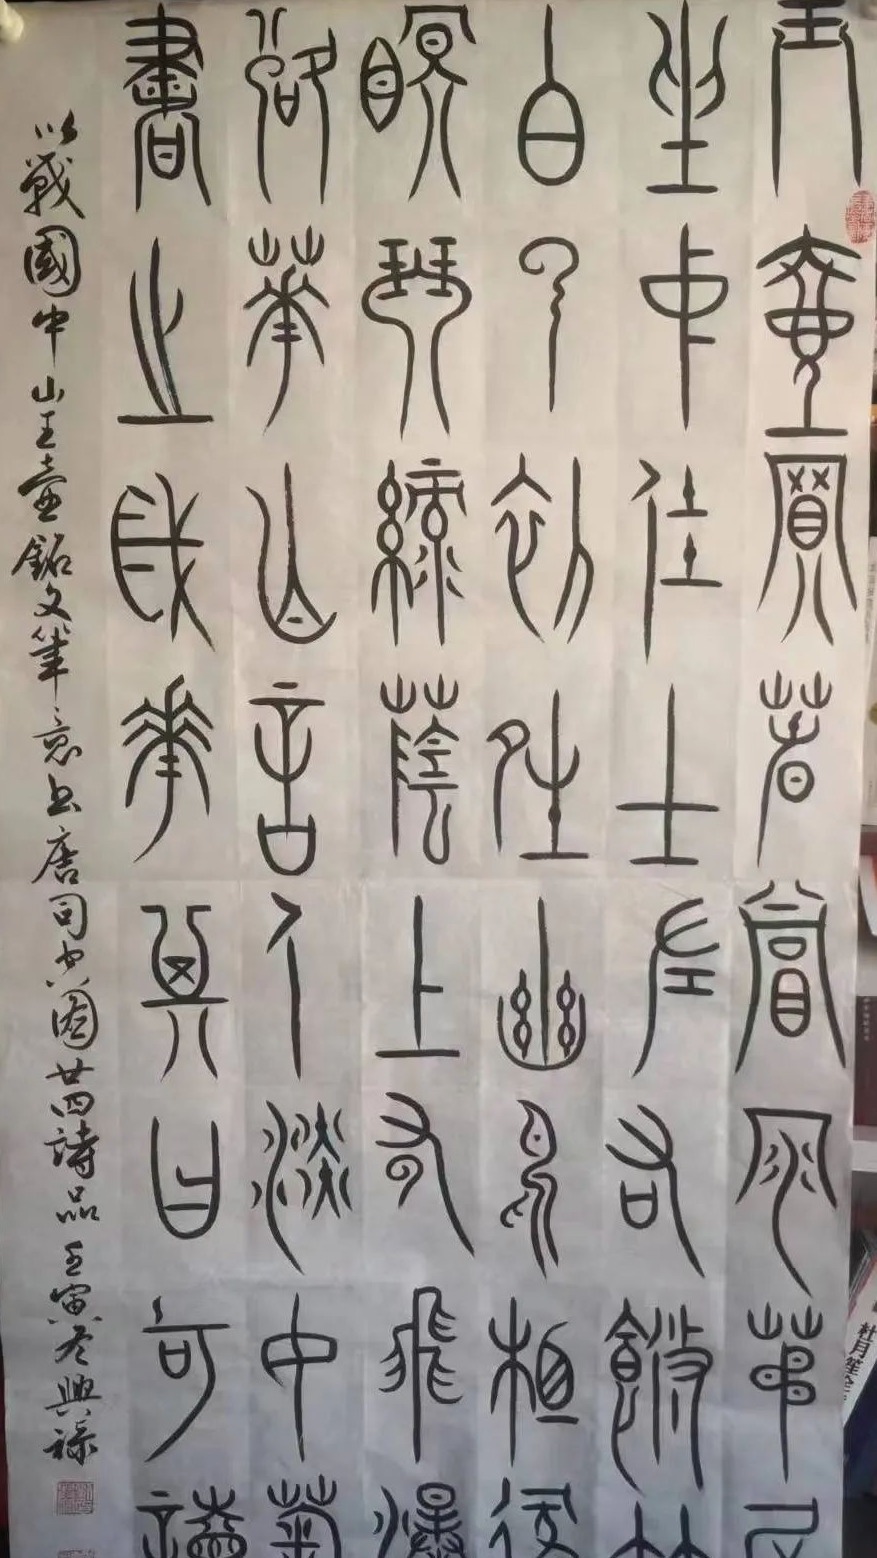 玉壺買春賞雨茆屋
坐中佳士左右脩竹
白云初夝幽鳥相逐
瞑琴綠蔭上有飛瀑
落華亡言人淡如菊
書之歲華其曰可讀
以戰國中山王壺銘文筆意書唐司空圖廿四詩品壬寅冬興祿